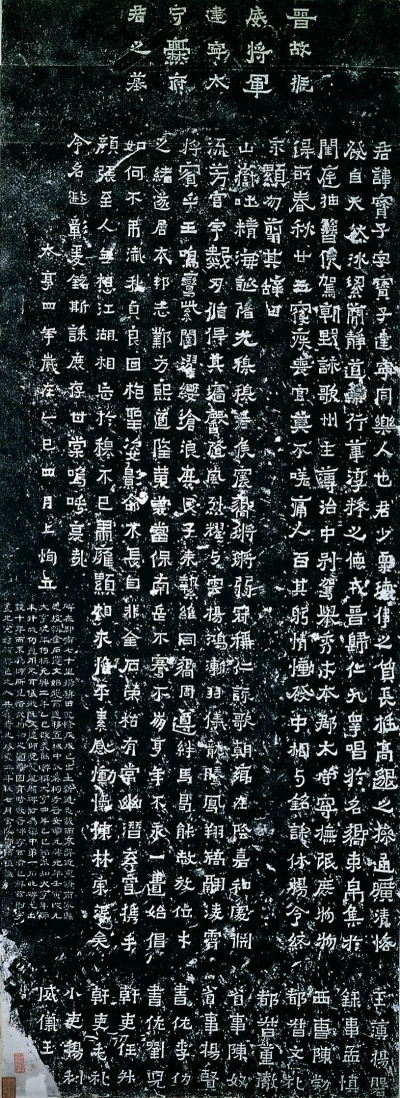 晉故振
威將軍
建寧太
守爨府
君之墓
君諱寶子字寶子建寧同樂人也君少稟瓌偉之質長挺高邈之操通曠清恪
發自天然冰絜簡靜道兼行葦淳粹之德戎晉歸仁九皋唱於名響束帛集於
閨庭抽簪俟駕朝野詠歌州主簿治中別駕舉秀才本郡太守寧撫氓庶物物
得所春秋廿五寢疾喪官莫不嗟痛人百其躬情慟發中相與銘誄休揚令終
永顯勿翦其辭曰
山嶽吐精海誕陥光穆穆君侯震響鏘鏘弱冠稱仁詠歌朝鄉在陰嘉和處淵
流芳宮宇數仞循得其墻馨隨風烈耀與雲揚鴻漸羽儀龍騰鳳翔矯翮凌霄
將賓乎王鳴鸞紫闥濯纓滄浪庶民子來縶維同嚮周遵絆馬曷能赦放位才
之緒遂居本邦志鄴方熙道隆黃裳當保南岳不騫不崩享年不永一匱始倡
如何不弔殲我貞良回枹聖姿影命不長自非金石榮枯有常幽潛玄穹攜手
顏張至人無想江湖相忘於穆不已肅雍顯相永惟平素感慟忾慷林宗沒矣
令名遐彰爰銘斯誄庶存甘棠嗚呼哀哉
太亨四年歲在乙巳四月上恂立
主簿楊磐
錄事孟慎
西曹陳勃
都督文禮
都督董徹
省事陳奴
省事楊賢
書佐李仂
書佐劉兒
幹吏任升
幹吏毛禮
小吏楊利
威儀王